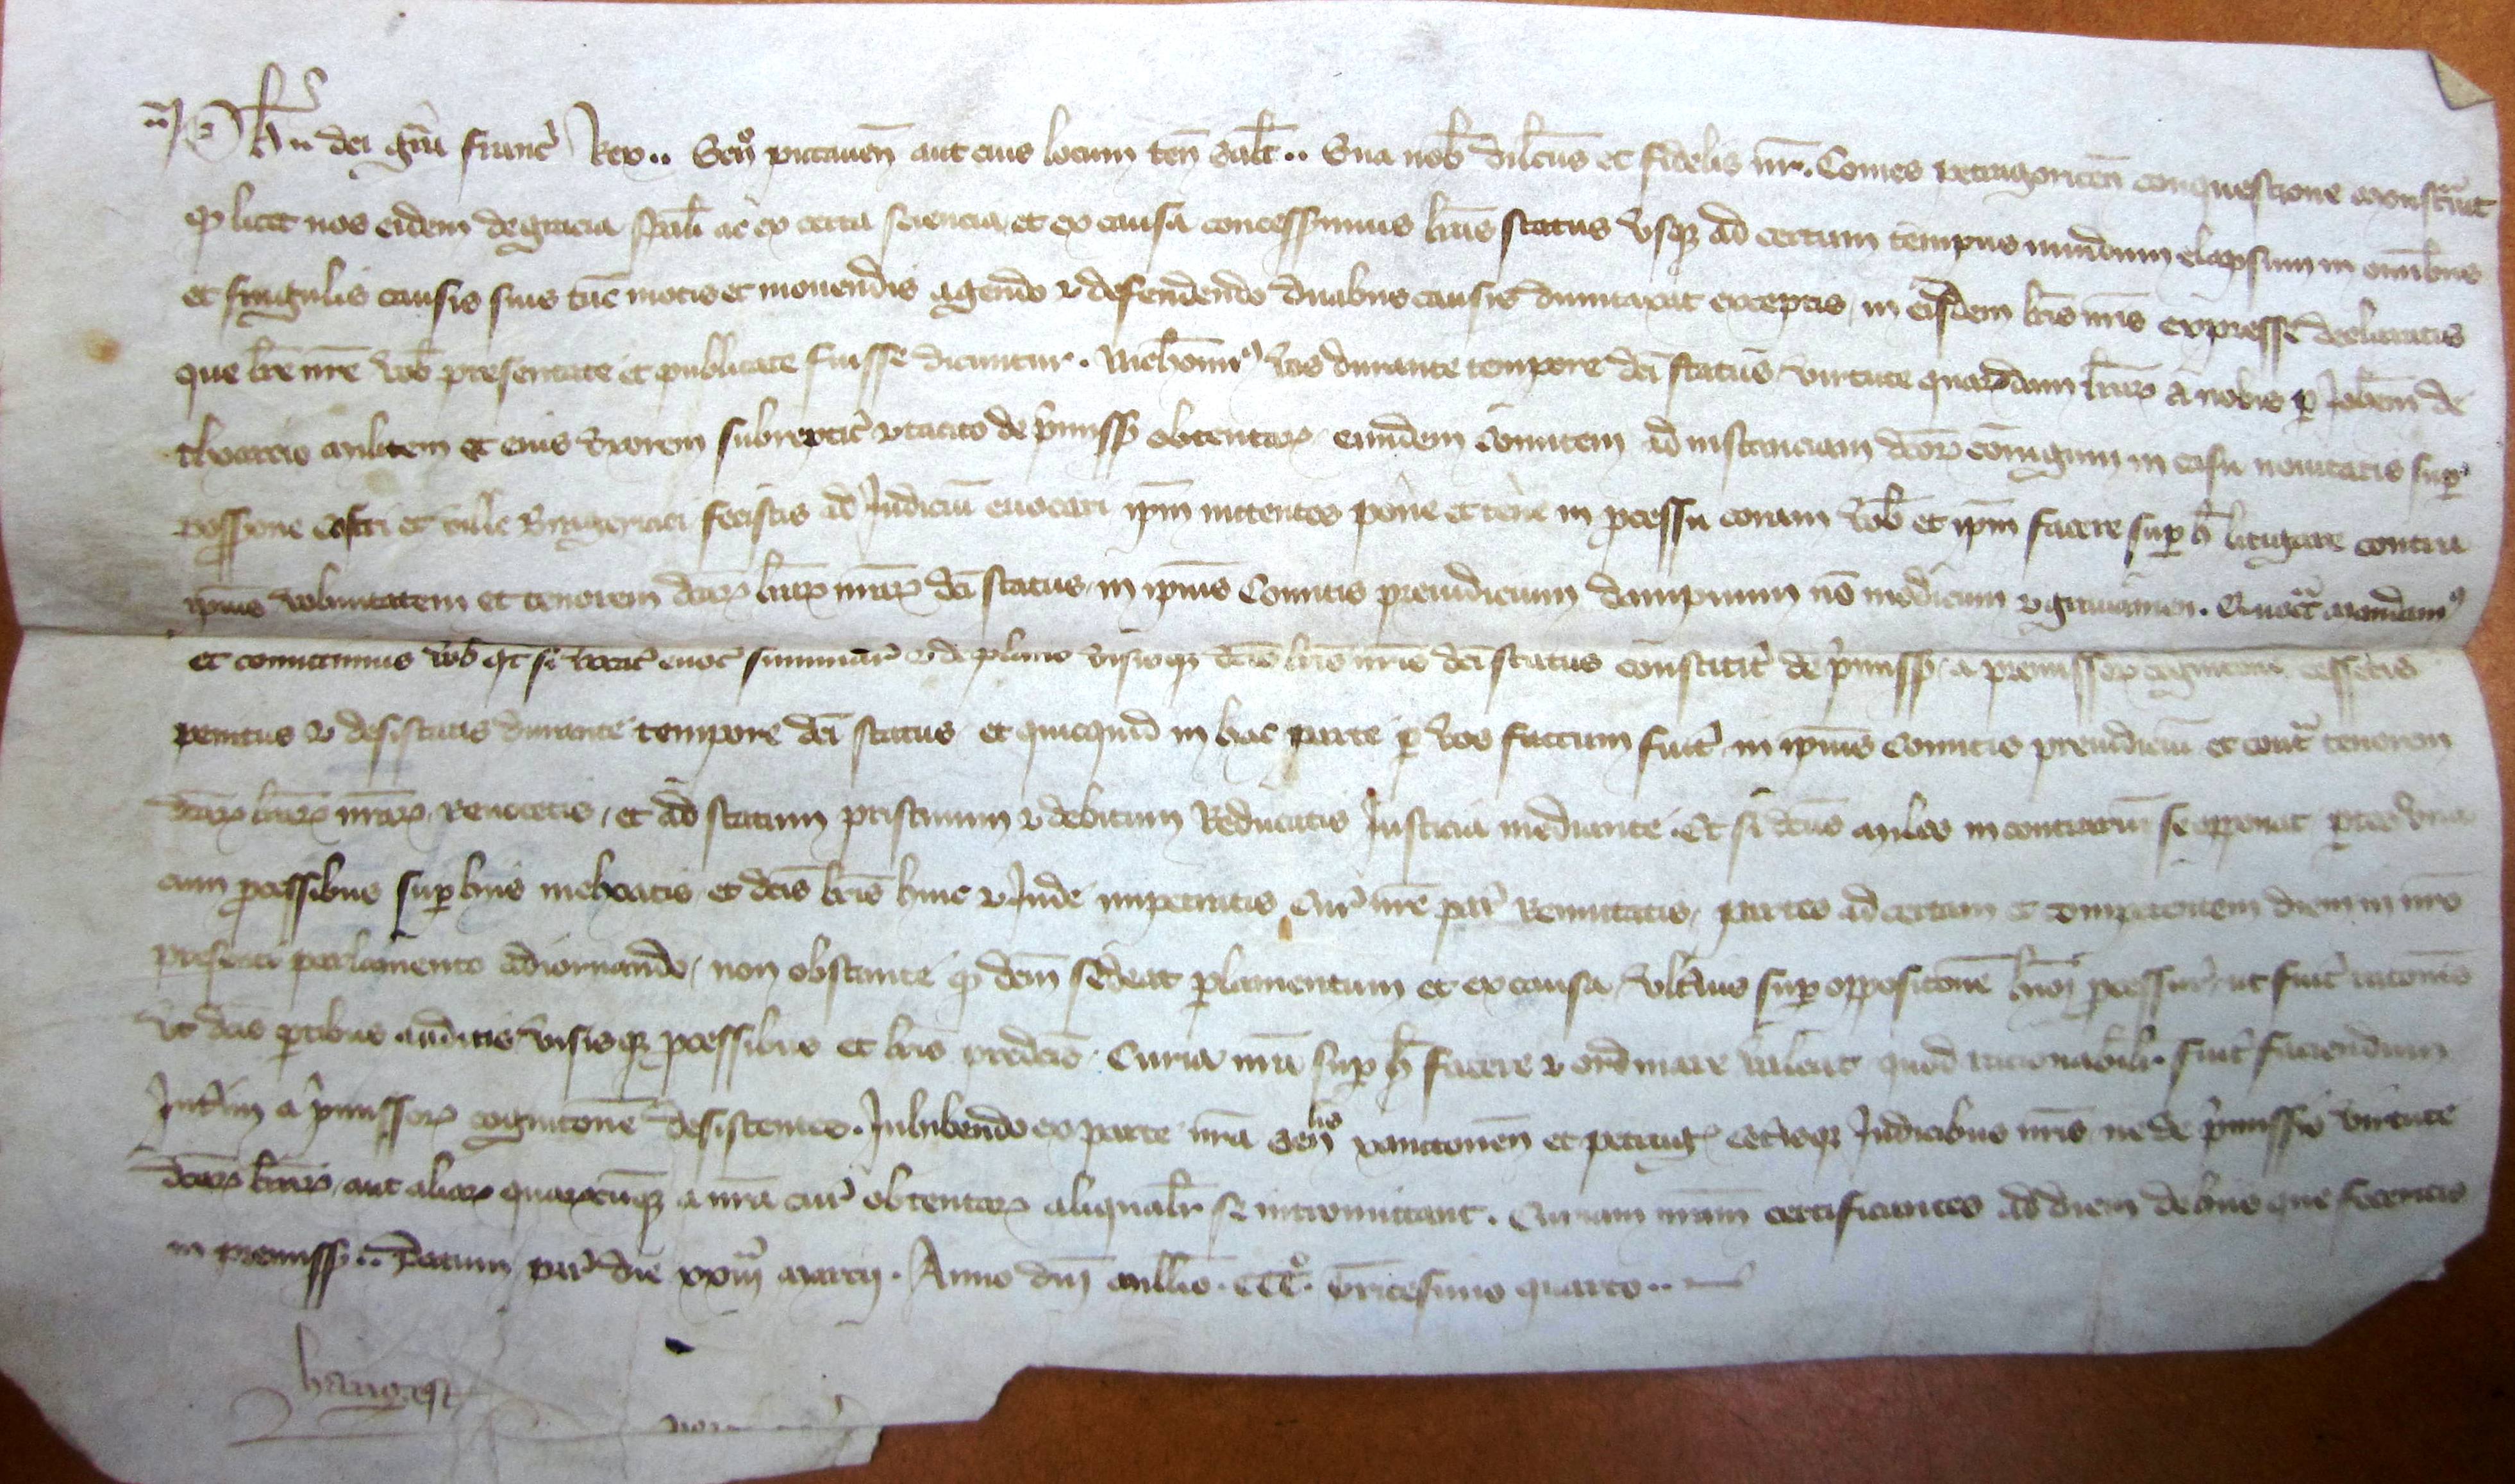 Ph. dei gra Franc Rex.. Sen pictaven aut eius locum ten salt.. Sua nob dilcus et fidelis nr. Comes petragoricen conquestione monstravit
q licet nos eidem de gracia spali ac ex certa sciencia et ex causa concesserimus lras status usq ad certum tempus nundum elapsum in omibus
et singulis causis suis tuc motis et movendis agendo et defendendo duabus causis dumtaxat exceptis in eisdem lris nris expresse declaratis
que lre nre vob presentate et publicate fuisse dicuntur. Nichomin vos durante tempore dci status virtute quarudam lrar a nobis p Johem de
militem et eius uxorem subreptic et tacito de pmiss obtentar eundem Comitem ad instanciam dcor coniugum in casu novitatis sup
possessione castri et ville Brageriaci fecistis ad Judiciu evocari ipm nitentes pone et tene in pcessu coram vob et ipm facere sup h litigare contra
ipius voluntatem et tenorem dcar lrar nrar dci status in ipius Comitis preiudicium dampnum no modicum et gravamen. Quoct mandam
et comittimus vob qt si vocat evoc summar et de plano visisq dcis lris nris dci status constiterit de pmiss a premissor cognicione cessetis
penitus et desistatis durante tempore dci status et quicquid in hac parte p vos factum fuit in ipius Comitis preiudiciu et cont tenorem
dcar lrar nrar revocetis, et ad statum pristinum et debitum Reducatis Justicia mediante. Et si dcus miles in contrariu se opponat ptes una
cum pcessibus sup hiis inchoatis et dcis lris hinc et Inde impetratis Cur nre par Remittatis, partes ad certam et competentem diem in nro
presenti parlamento adiornando, non obstante q dcm sedeat plamentum et ex causa, ultius sup oppositone hmoi pcessur ut fuit ratonis
ut dcis ptibus auditis visisq pcessibus et lris predcis. Curia nra sup h facere et ordinare valeat quod racionabilr fuit faciendum
Intim a pmissor cognitone desistentes. Inhibendo ex parte nra Senlis xanctonen et petrag ceterisq Judicibus nris ne de pmissis virtute
dcar lrar, aut aliar quarucuq a nra cur obtentar aliqualr se intromittant. Curiam nram certificantes ad diem de hiis que feceritis
in premiss.. Datum par die xxiii marcii. Anno dni millio. CCC. tricesimo quarto..
hangest